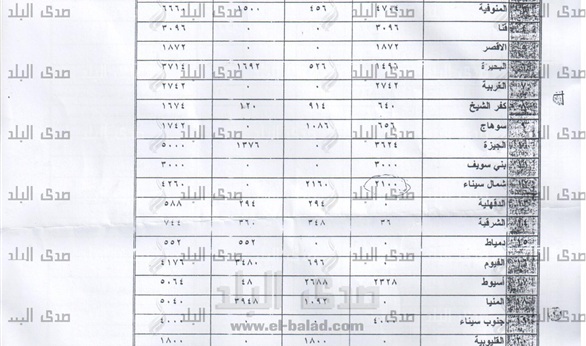 المنوفية ٤٧٠٨ ٤٥٦ ١٥٠٠ ٦٦٦٤
قنا ٣٠٩٦ ٠ ٠ ٣٠٩٦
الاقصر ١٨٧٢ ٠ ٠ ١٨٧٢
البحيرة ١٤٩٦ ٥٢٦ ١٦٩٢ ٣٧١٤
الغربية ٢٧٤٢ ٠ ٠ ٢٧٤٢
كفر الشيخ ٦٤٠ ٩١٤ ١٢٠ ١٦٧٤
سوهاج ٦٥٦ ١٠٨٦ ٠ ١٧٤٢
الجيزة ٣٦٢٤ ٠ ١٣٧٦ ٥٠٠٠
بني سويف ٣٠٠٠ ٠ ٠ ٣٠٠٠
شمال سيناء ٢١٠٠ ٢١٦٠ ٠ ٤٢٦٠
الدقهلية ٠ ٢٩٤ ٢٩٤ ٥٨٨
الشرقية ٣٦ ٣٤٨ ٣٦٠ ٧٤٤
دمياط ٠ ٠ ٥٥٢ ٥٥٢
الفيوم ٠ ٦٩٦ ٣٤٨٠ ٤١٧٦
أسيوط ٢٣٢٨ ٢٦٨٨ ٤٨ ٥٠٦٤
المنيا ٠ ١٠٩٢ ٣٩٤٨ ٥٠٤٠
جنوب سيناء ٤٠٠٠ ٠ ٠ ٤٠٠٠
القليوبية ٠ ١٨٠٠ ٠ ١٨٠٠
صدى البلد
www.el-balad.com